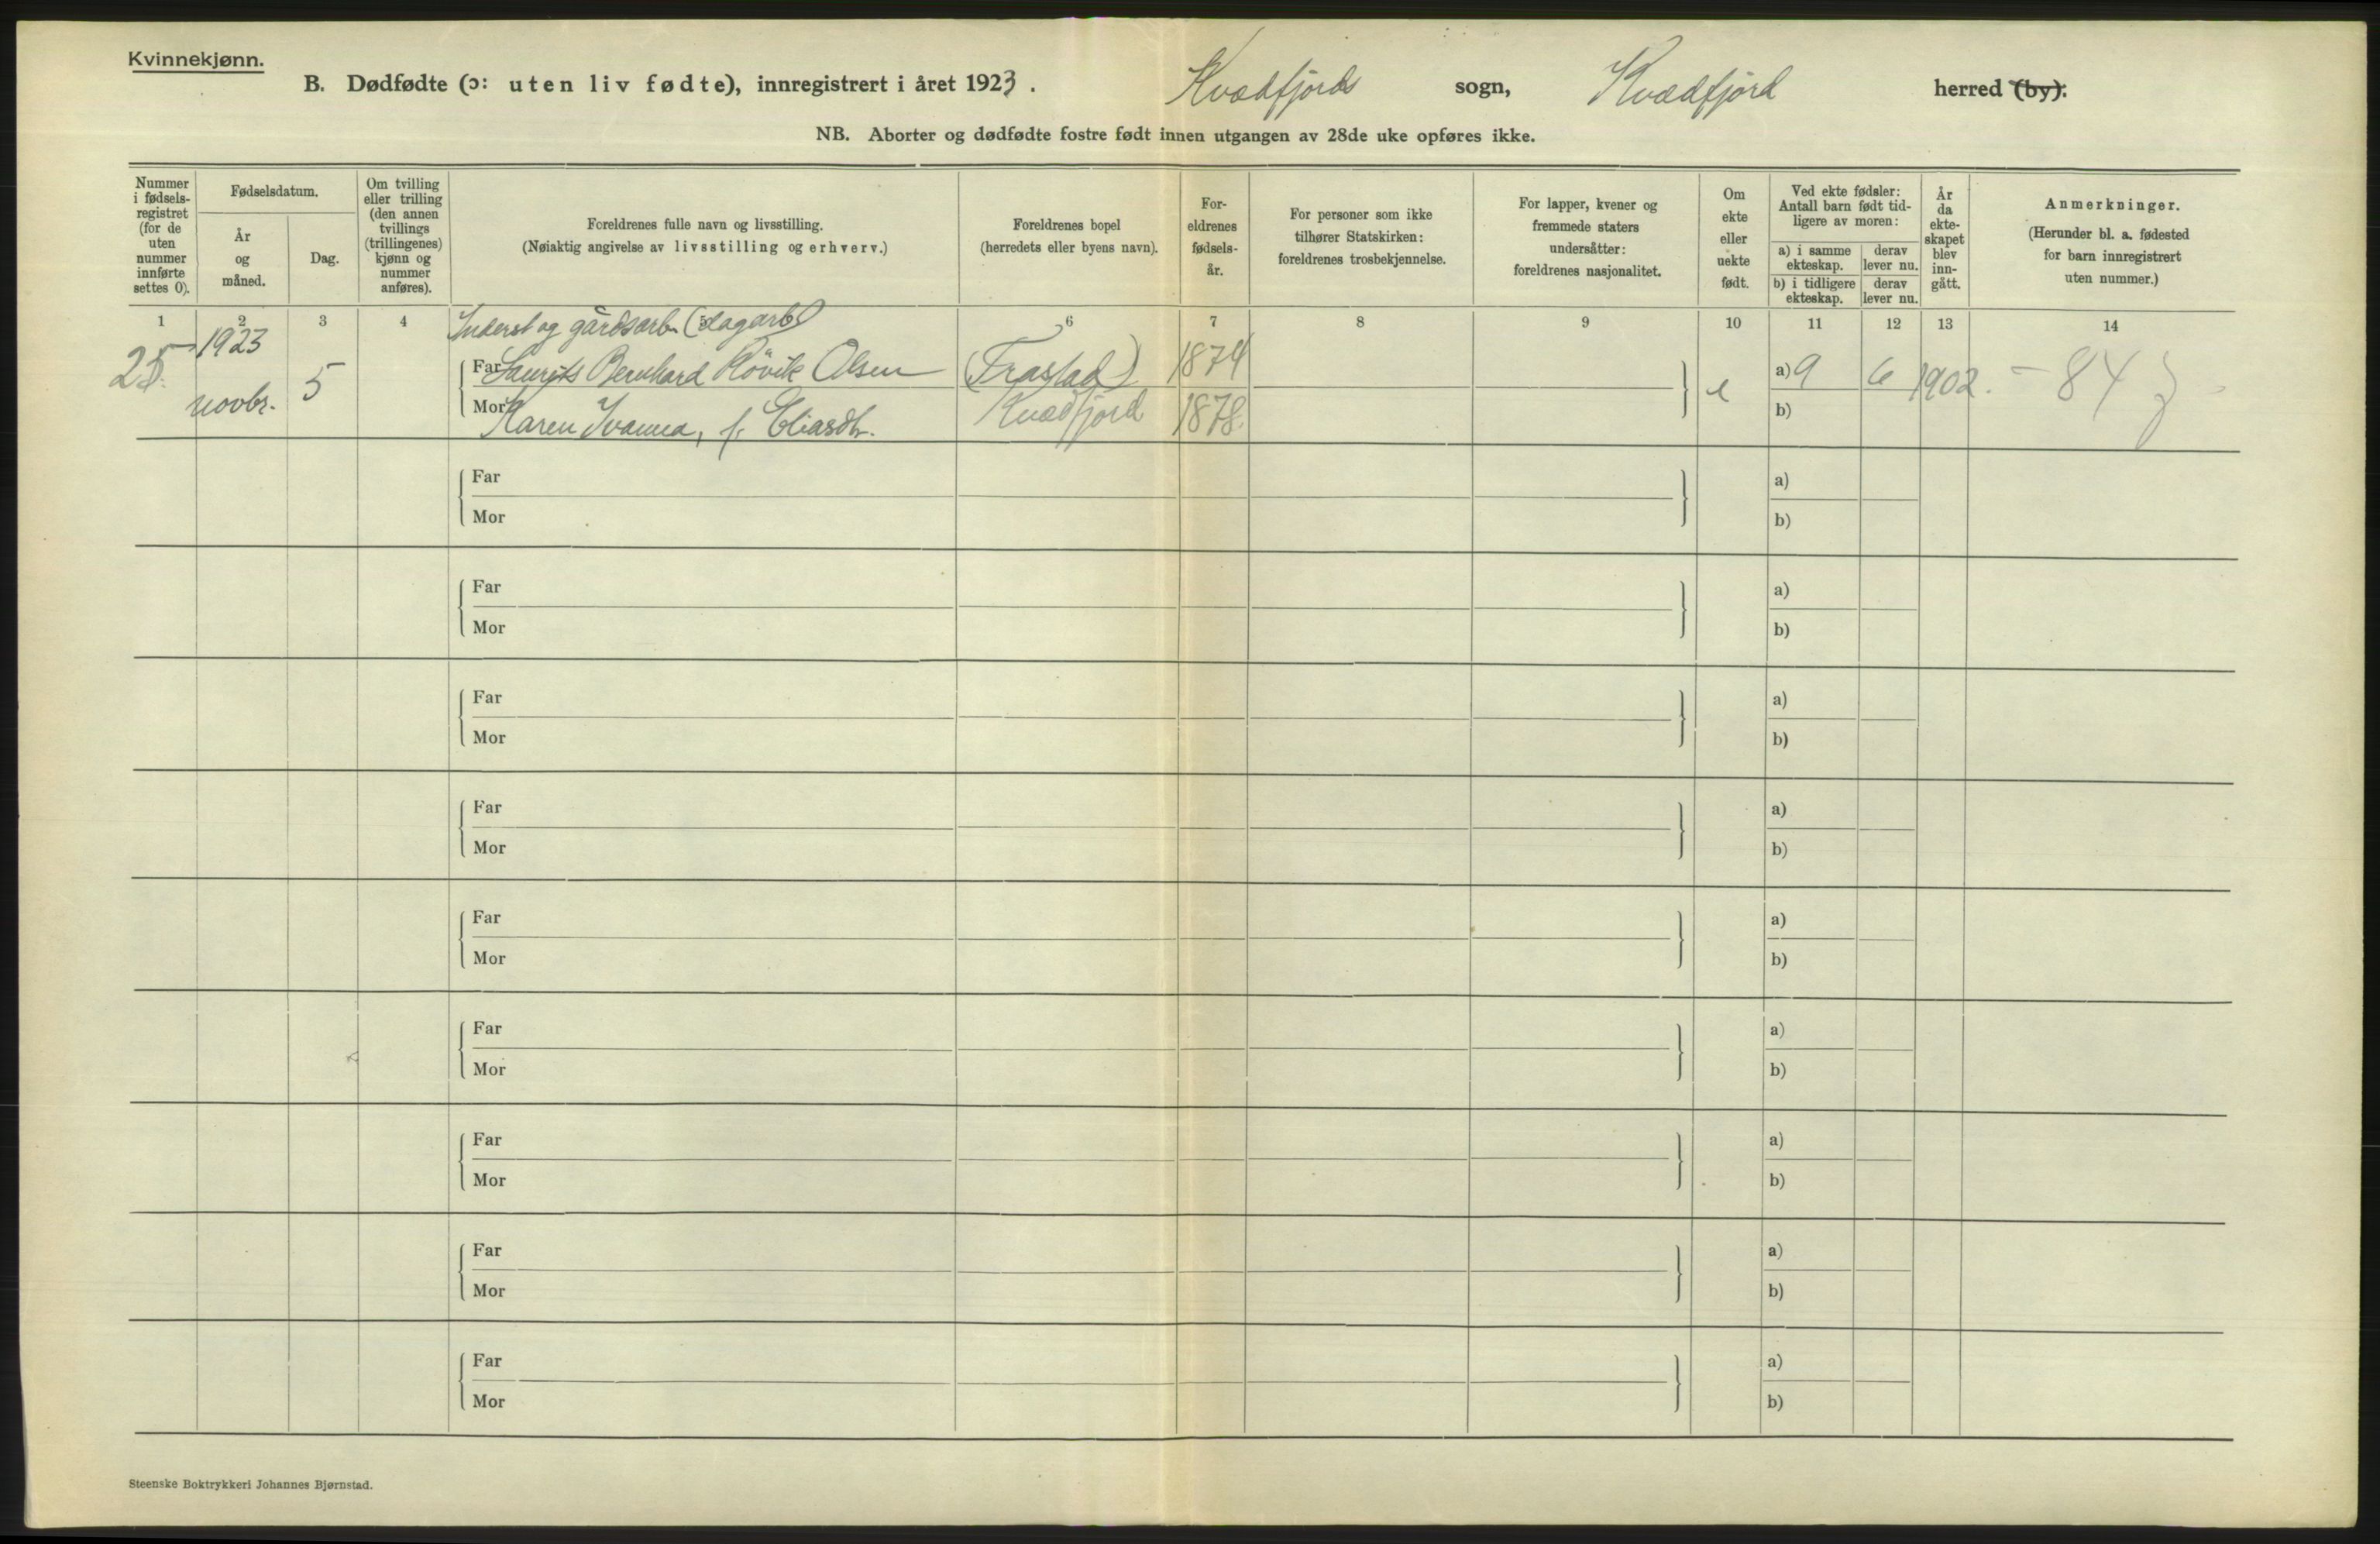 Kvinnekjønn.
B. Dødfødte (ɔ: uten liv fødte), innregistrert i året 1923. Kvædfjords sogn, Kvædfjord herred (by).
NB. Aborter og dødfødte fostre født innen utgangen av 28de uke opføres ikke.
Nummer i fødsels-registret (for de uten nummer innførte settes 0).
Fødselsdatum.
År og måned.
Dag.
Om tvilling eller trilling (den annen tvillings (trillingenes) kjønn og nummer anføres).
Foreldrenes fulle navn og livsstilling.
(Nøiaktig angivelse av livsstilling og erhverv.)
Foreldrenes bopel
(herredets eller byens navn).
For-eldrenes fødsels-år.
For personer som ikke tilhører Statskirken: foreldrenes trosbekjennelse.
For lapper, kvener og fremmede staters undersåtter: foreldrenes nasjonalitet.
Om ekte eller uekte født.
Ved ekte fødsler: Antall barn født tid-ligere av moren:
a) i samme ekteskap.
derav lever nu.
b) i tidligere ekteskap.
derav lever nu.
År da ekte-skapet blev inn-gått.
Anmerkninger.
(Herunder bl. a. fødested for barn innregistrert uten nummer.)
1 2 3 4 5 6 7 8 9 10 11 12 13 14
Inderst og gårdsarb. (dagarb)
25. 1923 novbr. 5
Far Laurits Bernhard Røvik Olsen (Trastad) 1874
e a) 9 6 1902. - 84
Mor Karen Ivanna, f. Eliasdtr. Kvædfjord 1878.
b)
Far a)
Mor b)
Far a)
Mor b)
Far a)
Mor b)
Far a)
Mor b)
Far a)
Mor b)
Far a)
Mor b)
Far a)
Mor b)
Far a)
Mor b)
Far a)
Mor b)
Steenske Boktrykkeri Johannes Bjørnstad.